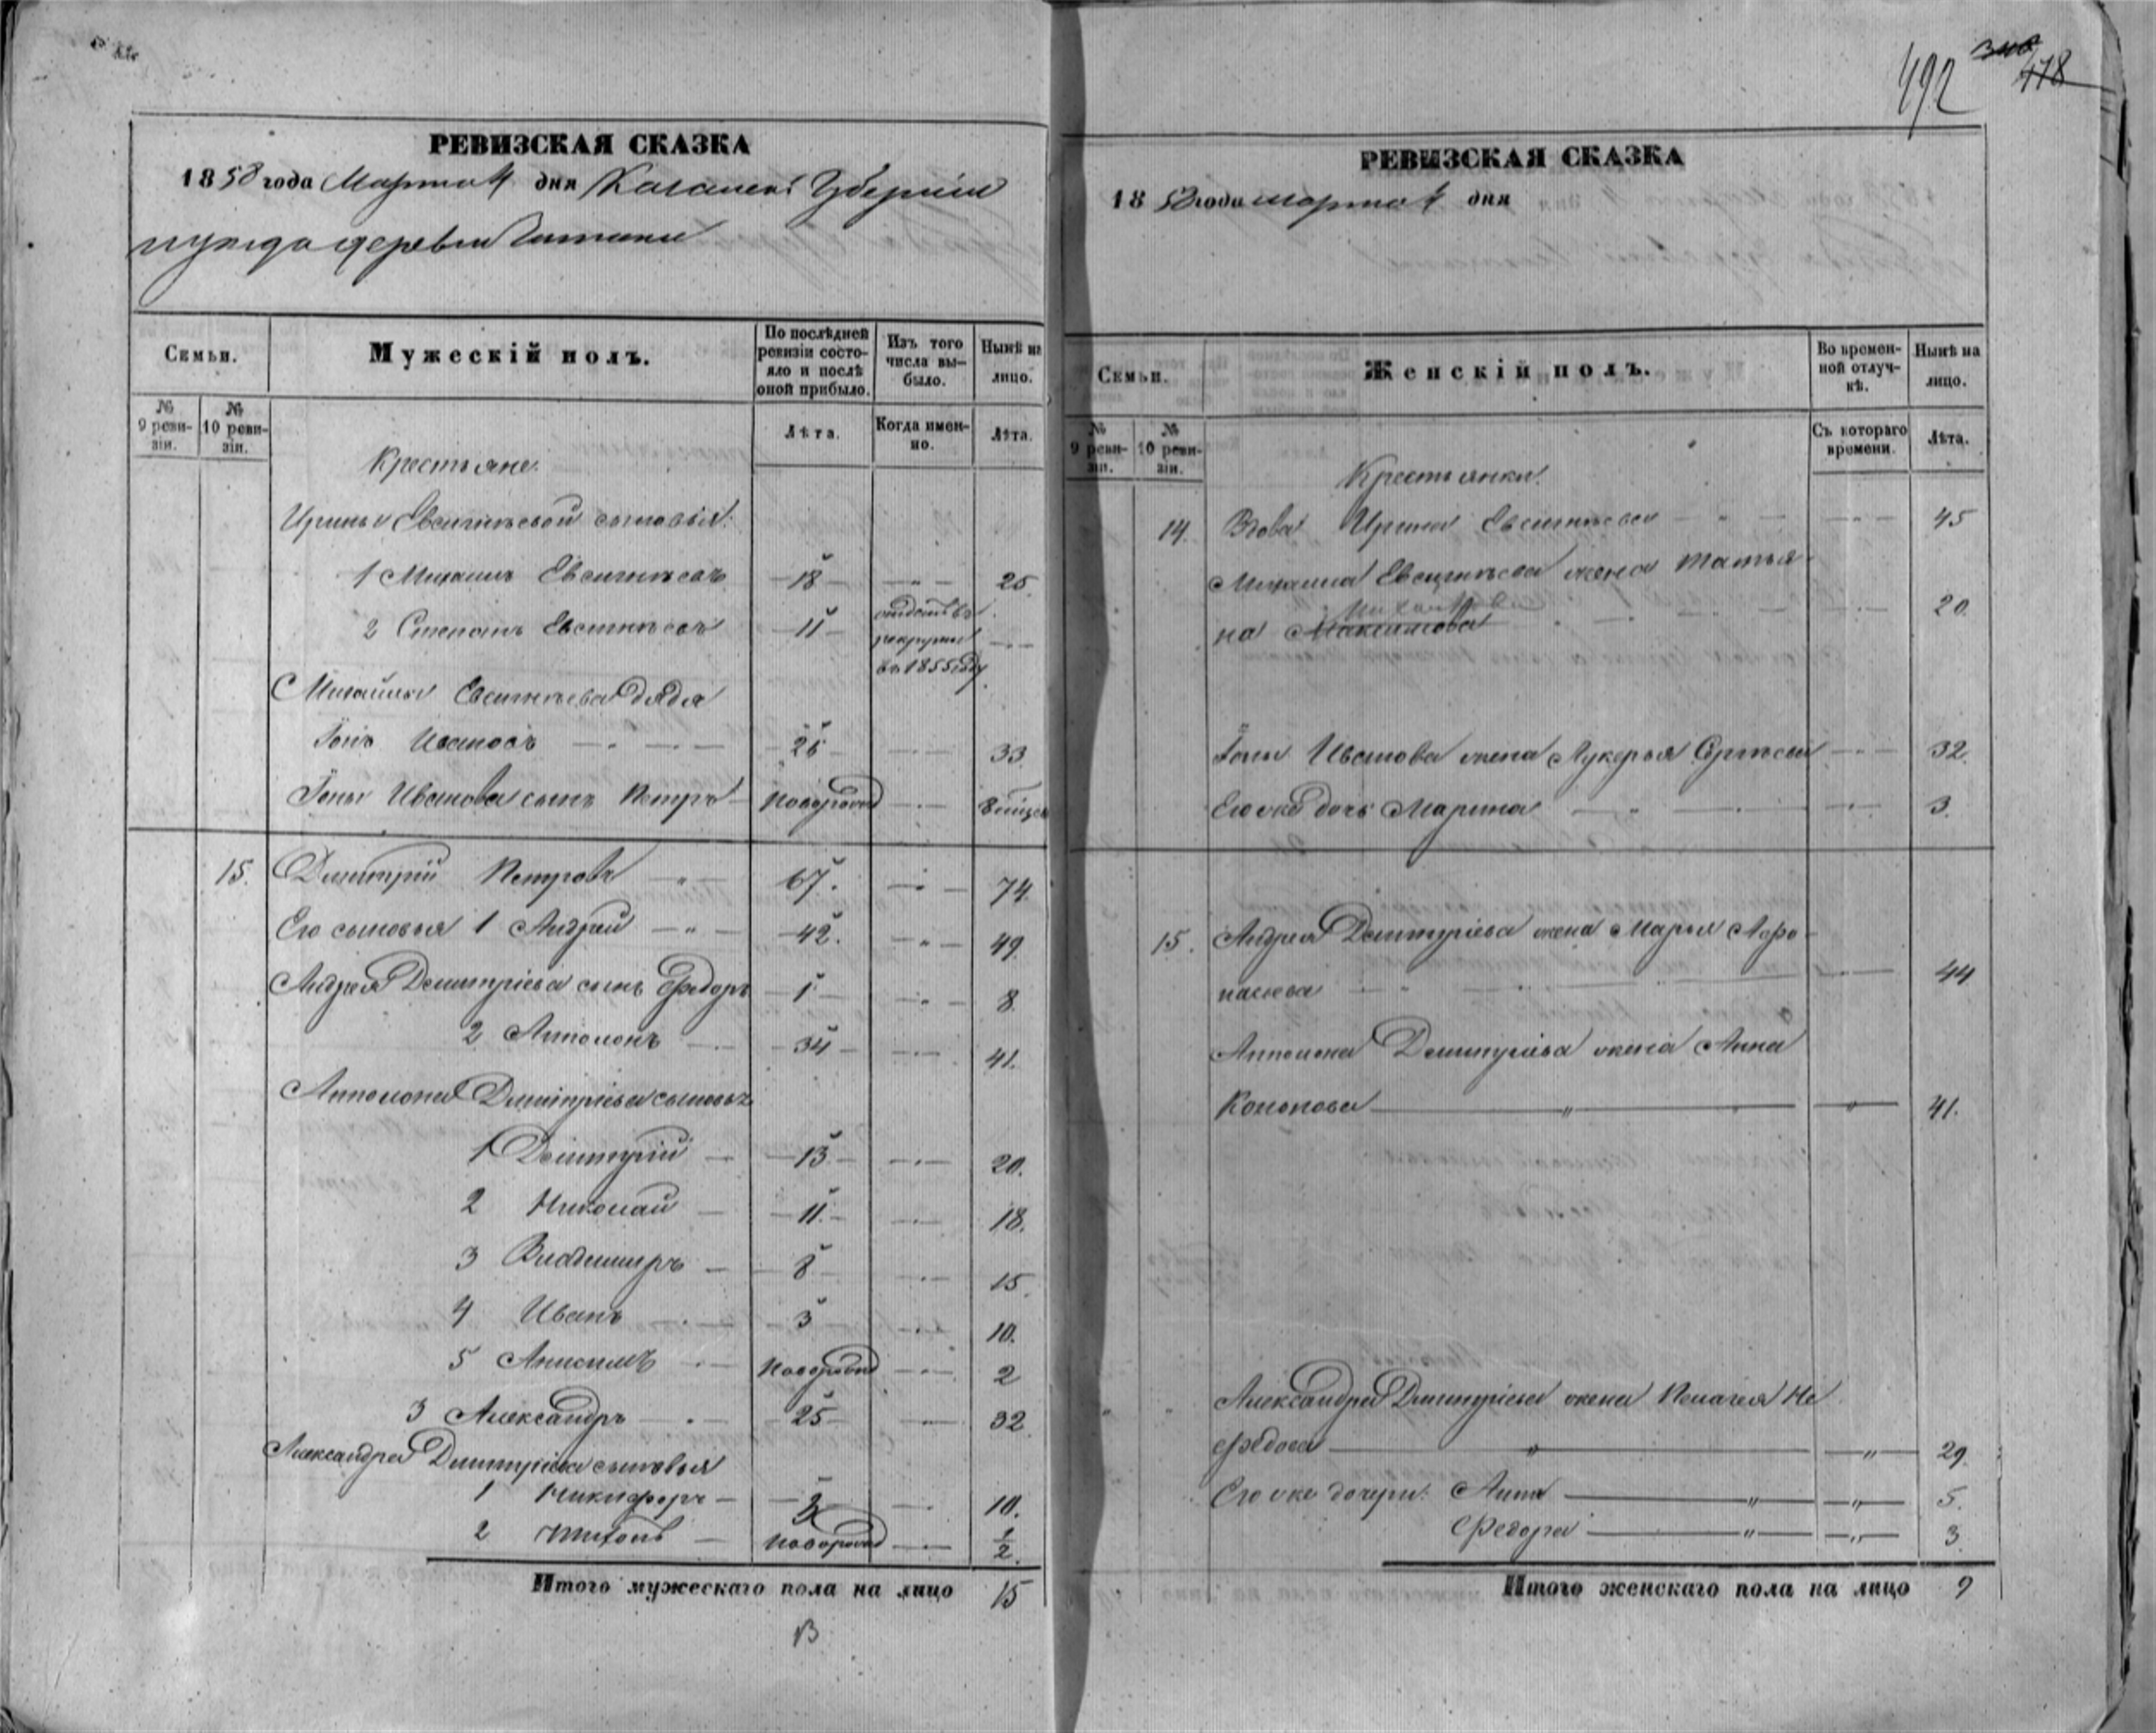 492 478
РЕВИЗСКАЯ СКАЗКА
1858 года Марта 4 дня Казанской Губерніи
уезда деревни
Семьи.
Мужескій полъ.
По послѣдней ревизіи состояло и послѣ оной прибыло.
Изъ того числа выбыло.
Нынѣ на лицо.
№ 9 ревизіи.
№ 10 ревизіи.
Лѣта.
Когда именно.
Лѣта.
Крестьяне.
Ирины Евсигнѣевой сыновья:
1 Михаилъ Евсигнѣевъ 18 25
2 Степанъ Евсигнѣевъ 11 отданъ въ
рекруты
въ 1855 году
Михайлы Евсигнѣева дядя
Іонъ Ивановъ 26 33
Іоны Иванова сынъ Петръ новорожд 8 мѣсяц
15. Дмитрій Петровъ 67. 74.
Его сыновья 1 Андрей 42. 49.
Андрея Дмитріева сынъ Федоръ 1 8.
2 Антононъ 34 41.
Антонона Дмитріева сыновья
1 Дмитрій 13 20.
2 Николай 11. 18.
3 Владимиръ 8 15.
4 Иванъ 3 10.
5 Анисимъ новорожд 2
3 Александръ 25 32
Александра Дмитріева сыновья
1 Никифоръ 3 10.
2 Тихонъ новорожд 1/2
Итого мужескаго пола на лицо 15
РЕВИЗСКАЯ СКАЗКА
1858 года марта 4 дня
Семьи.
Женскій полъ.
Во временной отлучкѣ.
Нынѣ на лицо.
№ 9 ревизіи.
№ 10 ревизіи.
Съ котораго времени.
Лѣта.
Крестьянки.
14. Вдова Ирина Евсигнѣева 45
Михаила Евсигнѣева жена Татья-
Михайлова
на Максимова 20.
Іоны Иванова жена Лукерья Сергѣева 32.
Его же дочь Марина 3.
15. Андрея Дмитріева жена Марья Афо-
насьева 44
Антонона Дмитріева жена Анна
Кононова 41.
Александра Дмитріева жена Пелагея Не-
федова 29.
Его же дочери: Анна 5.
Федора 3.
Итого женскаго пола на лицо 9